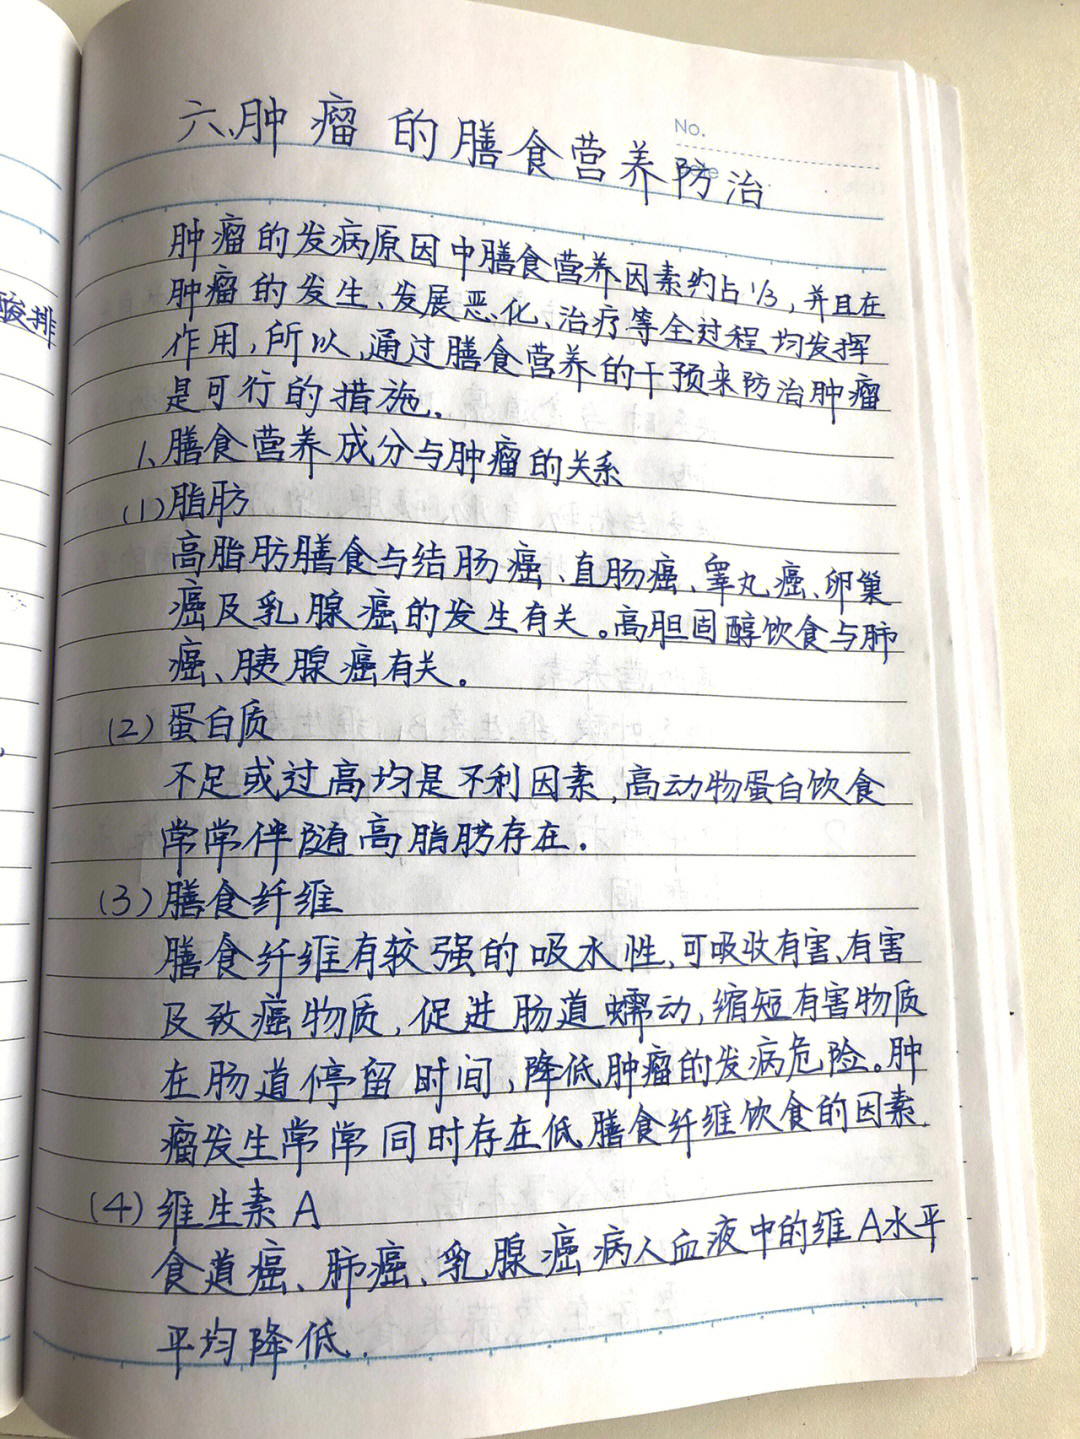 酸排
No.
六、肿瘤的膳食营养防治
肿瘤的发病原因中膳食营养因素约占1/3,并且在
肿瘤的发生、发展恶化、治疗等全过程均发挥
作用,所以,通过膳食营养的干预来防治肿瘤
是可行的措施.
1、膳食营养成分与肿瘤的关系
(1)脂肪
高脂肪膳食与结肠癌、直肠癌、睾丸癌、卵巢
癌及乳腺癌的发生有关。高胆固醇饮食与肺
癌、胰腺癌有关。
(2)蛋白质
不足或过高均是不利因素,高动物蛋白饮食
常常伴随高脂肪存在.
(3)膳食纤维
膳食纤维有较强的吸水性,可吸收有害、有害
及致癌物质,促进肠道蠕动,缩短有害物质
在肠道停留时间,降低肿瘤的发病危险。肿
瘤发生常常同时存在低膳食纤维饮食的因素.
(4)维生素A
食道癌、肺癌、乳腺癌病人血液中的维A水平
平均降低.